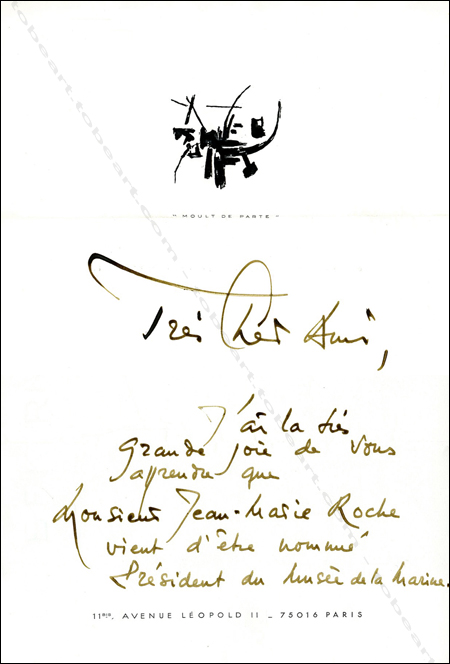 " MOULT DE PARTE "
Très Cher Ami,
J'ai la très
grande joie de vous
aprendre que
Monsieur Jean-Marie Roche
vient d'être nommé
Président du Musée de la Marine.
11bis. AVENUE LÉOPOLD II _ 75016 PARIS
tobeart.com - tobeart.com - tobeart.com